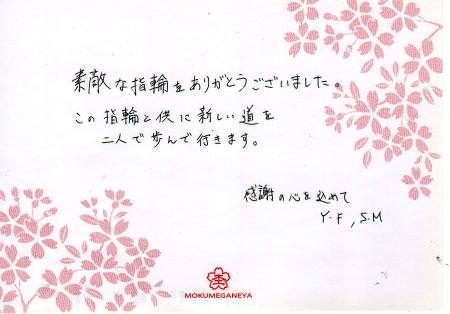 素敵な指輪をありがとうございました。
この指輪と供に新しい道を
二人で歩んで行きます。
感謝の心を込めて
Y.F , S.M
MOKUMEGANEYA